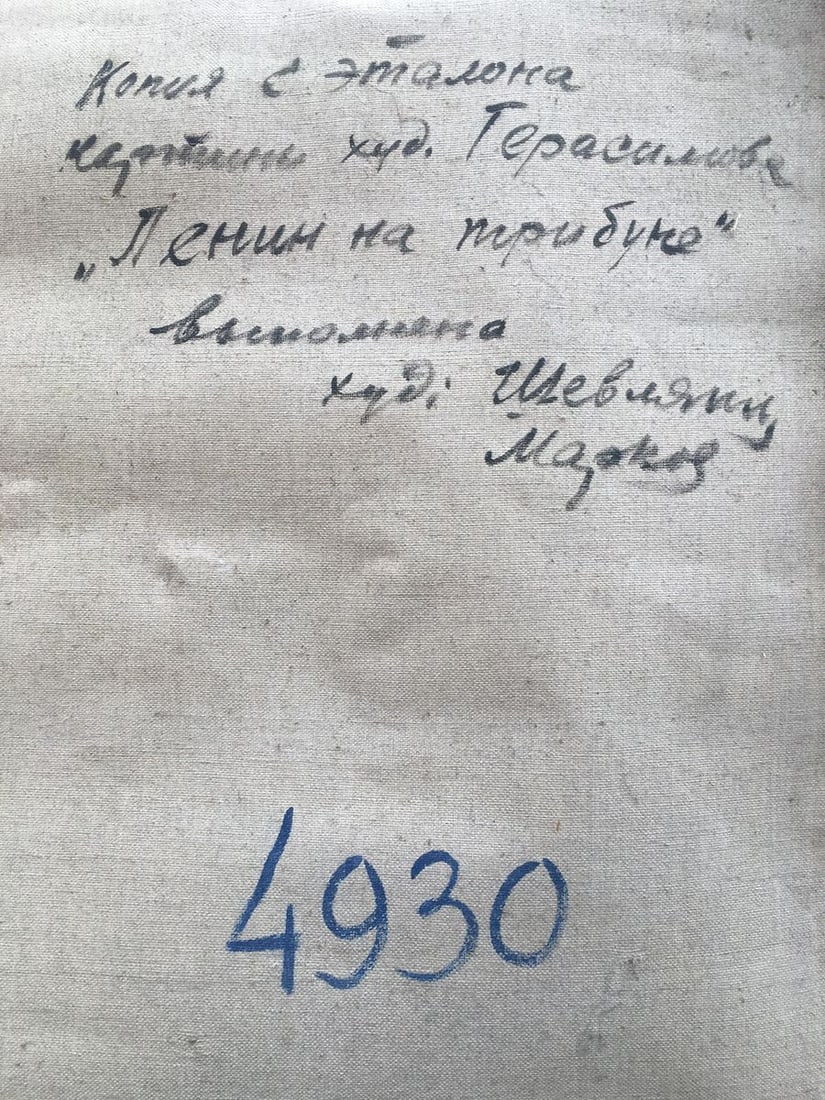 Копия с эталона
картины худ. Герасимова
„Ленин на трибуне“
выполнена
худ: Шевлягин,
Марков
4930